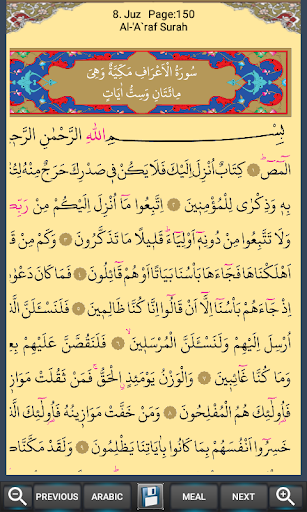 8. Juz   Page:150
Al-'A`raf Surah
سُورَةُ الْاَعْرَافِ مَكِّيَّةٌ وَهِيَ
مِائَتَانِ وَسِتُّ اٰيَاتٍ
بِسْــــــمِ اللّٰهِ الرَّحْمٰنِ الرَّحٖ
الٓمٓصٓ ﴿١﴾ كِتَابٌ اُنْزِلَ اِلَيْكَ فَلَا يَكُنْ فٖي صَدْرِكَ حَرَجٌ مِنْهُ لِتُنْ
بِهٖ وَذِكْرٰى لِلْمُؤْمِنٖينَ ﴿٢﴾ اِتَّبِعُوا مَٓا اُنْزِلَ اِلَيْكُمْ مِنْ رَبِّكُ
وَلَا تَتَّبِعُوا مِنْ دُونِهٖٓ اَوْلِيَٓاءَ قَلٖيلًا مَا تَذَكَّرُونَ ﴿٣﴾ وَكَمْ مِنْ قَ
اَهْلَكْنَاهَا فَجَٓاءَهَا بَأْسُنَا بَيَاتًا اَوْ هُمْ قَٓائِلُونَ ﴿٤﴾ فَمَا كَانَ
اِذْ جَٓاءَهُمْ بَأْسُنَٓا اِلَّٓا اَنْ قَالُٓوا اِنَّا كُنَّا ظَالِمٖينَ ﴿٥﴾ فَلَنَسْـَٔلَنَّ الَّ
اُرْسِلَ اِلَيْهِمْ وَلَنَسْـَٔلَنَّ الْمُرْسَلٖينَ ﴿٦﴾ فَلَنَقُصَّنَّ عَلَيْهِمْ بِعِ
وَمَا كُنَّا غَٓائِبٖينَ ﴿٧﴾ وَالْوَزْنُ يَوْمَئِذٍ الْحَقُّ فَمَنْ ثَقُلَتْ مَوَازٖ
فَاُو۬لٰٓئِكَ هُمُ الْمُفْلِحُونَ ﴿٨﴾ وَمَنْ خَفَّتْ مَوَازٖينُهُ فَاُو۬لٰٓئِكَ الَّ
خَسِرُٓوا اَنْفُسَهُمْ بِمَا كَانُوا بِاٰيَاتِنَا يَظْلِمُونَ ﴿٩﴾ وَلَقَدْ مَكَّنَّا
PREVIOUS ARABIC MEAL NEXT